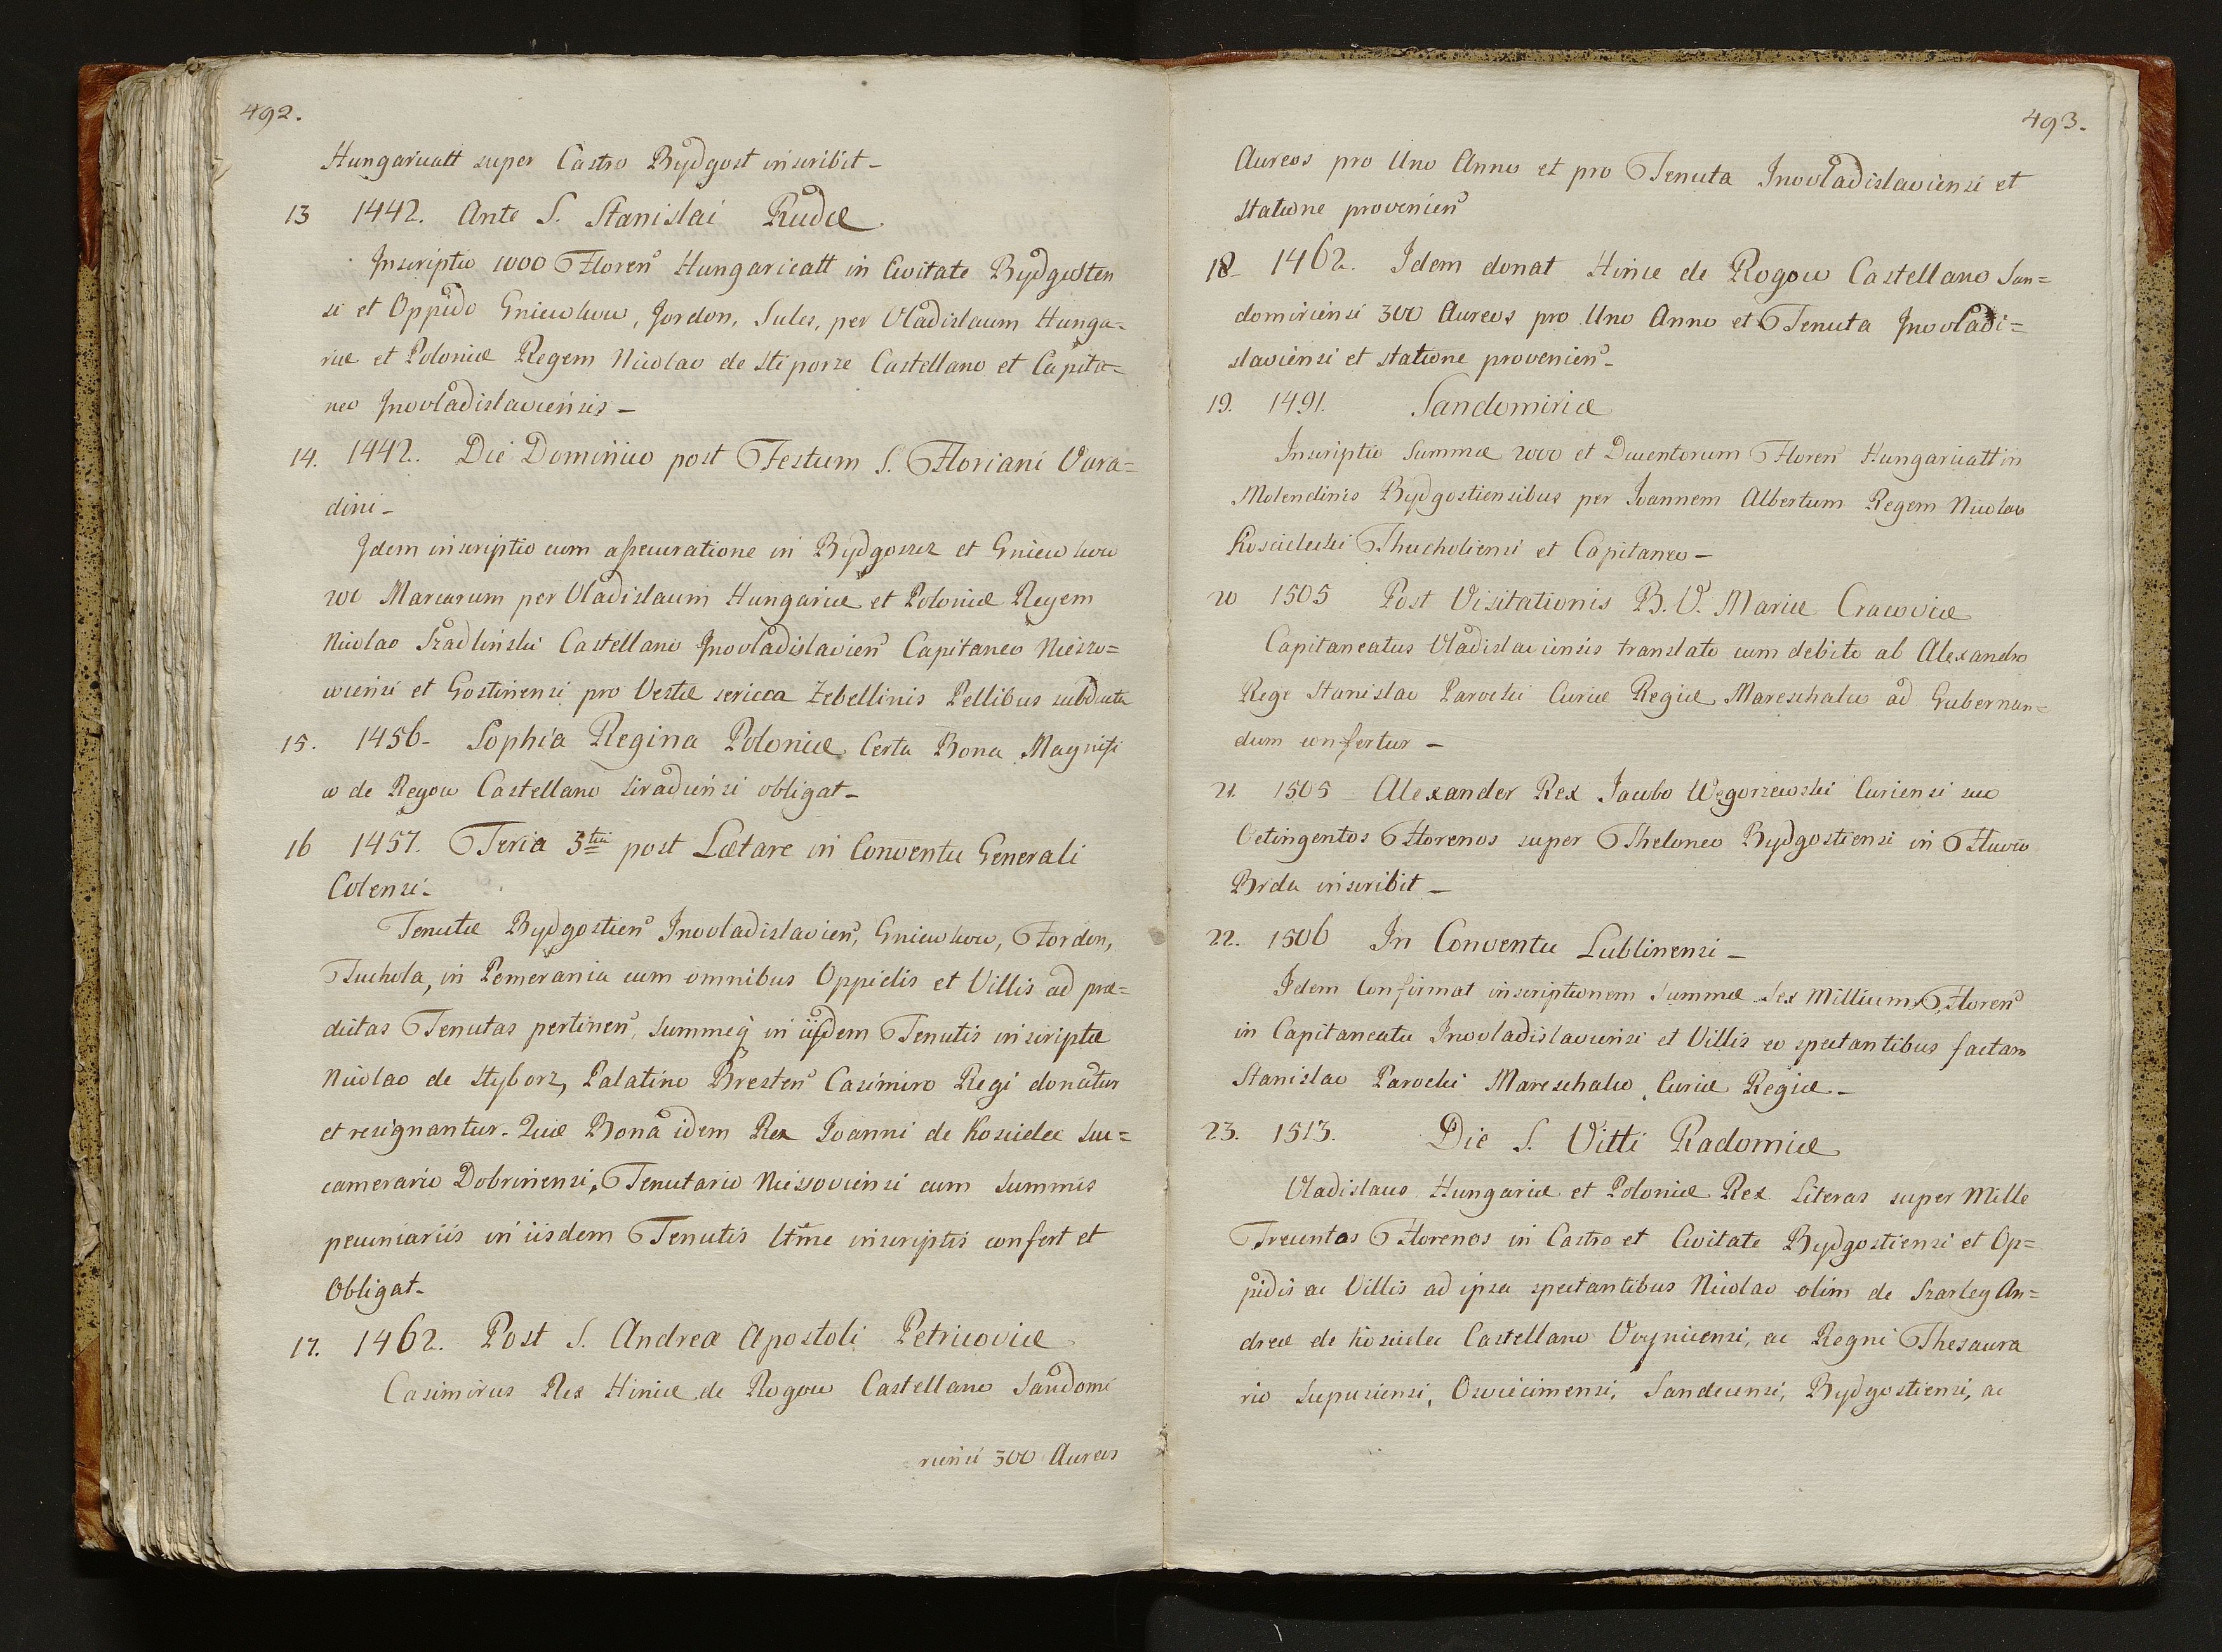 492.
Hungaricatt super Castro Bydgost inscribit_
13 1442. Ante S. Stanislai Rudæ
Inscriptio 1000 Floren Hungaricatt in Civitate Bydgosten
si et Oppido Gniewkow, Jordon, Sules, per Vladislaum Hunga=
riæ et Poloniæ Regem Nicolao de Stiporze Castellano et Capita=
neo Inovladislaviensis_
14. 1442. Die Dominico post Festum S. Floriani Vara=
dini_
Idem inscriptio cum assecuratione in Bydgoszcz et Gniewkow
200 Marcarum per Vladislaum Hungariæ et Poloniæ Regem
Nicolao Szadlinski Castellano Inovladislavien Capitaneo Nieszo=
wiensi et Gostinensi pro Veste sericea Zebellinis Pellibus subducta
15. 1456_ Sophia Regina Poloniæ Certa Bona Magnifi
co de Rogow Castellano Siradiensi obligat_
16 1457. Feria 3tia post Lætare in Conventu Generali
Colensi_
Tenutæ Bydgostien Inovladislavien, Gniewkow, Fordon,
Tuchola, in Pomerania cum omnibus Oppidis et Villis ad præ=
dictas Tenutas pertinen, Summeq in iisdem Tenutis inscriptæ
Nicolao de Styborz, Palatino Bresten Casimiro Regi donatur
et resignantur. Quæ Bona idem Rex Joanni de Koscielec Suc=
camerario Dobrinensi, Tenutario Niessoviensi cum Summis
pecuniariis in iisdem Tenutis ltime inscriptis confert et
Obligat_
17. 1462. Post S. Andreæ Apostoli Petricoviæ
Casimirus Rex Hiniæ de Rogow Castellano Sandomi
riensi 300 Aureos
493.
Aureos pro Uno Anno et pro Tenuta Inovladislaviensi et
statione provenien
18_ 1462. Idem donat Hince de Rogow Castellano San=
domiriensi 300 Aureos pro Uno Anno et Tenuta Inovladi=
slaviensi et statione provenien_
19. 1491. Sandomiriæ
Inscriptio Summæ 2000 et Ducentorum Floren Hungaricatt in
Molendinis Bydgostiensibus per Joannem Albertum Regem Nicolao
Koscielecki Thucholiensi et Capitaneo_
20 1505 Post Visitationis B. V. Mariæ Cracoviæ
Capitaneatus Vladislaviensis translato cum debito ab Alexandro
Rege Stanislao Parocki Curiæ Regiæ Mareschalco ad Gubernan=
dum confertur_
21. 1505_ Alexander Rex Jacobo Węgorzewski Curiensi suo
Octingentos Florenos super Theloneo Bydgostiensi in Fluvio
Brda inscribit_
22. 1506 In Conventu Lublinensi_
Idem Confirmat inscriptionem Summæ Sex Millium Floren
in Capitaneatu Inovladislaviensi et Villis eo spectantibus factam
Stanislao Parocki Mareschalco Curiæ Regiæ_
23. 1513. Die S. Vitti Radomiæ
Vladislaus Hungariæ et Poloniæ Rex Literas super Mille
Trecentos Florenos in Castro et Civitate Bydgostiensi et Op=
pidis ac Villis ad ipsa spectantibus Nicolao olim de Szarley An=
dreæ de Koscielec Castellano Voynicensi, ac Regni Thesaura
rio Scepusiensi, Oswiecimensi, Sandecensi, Bydgostiensi, ac